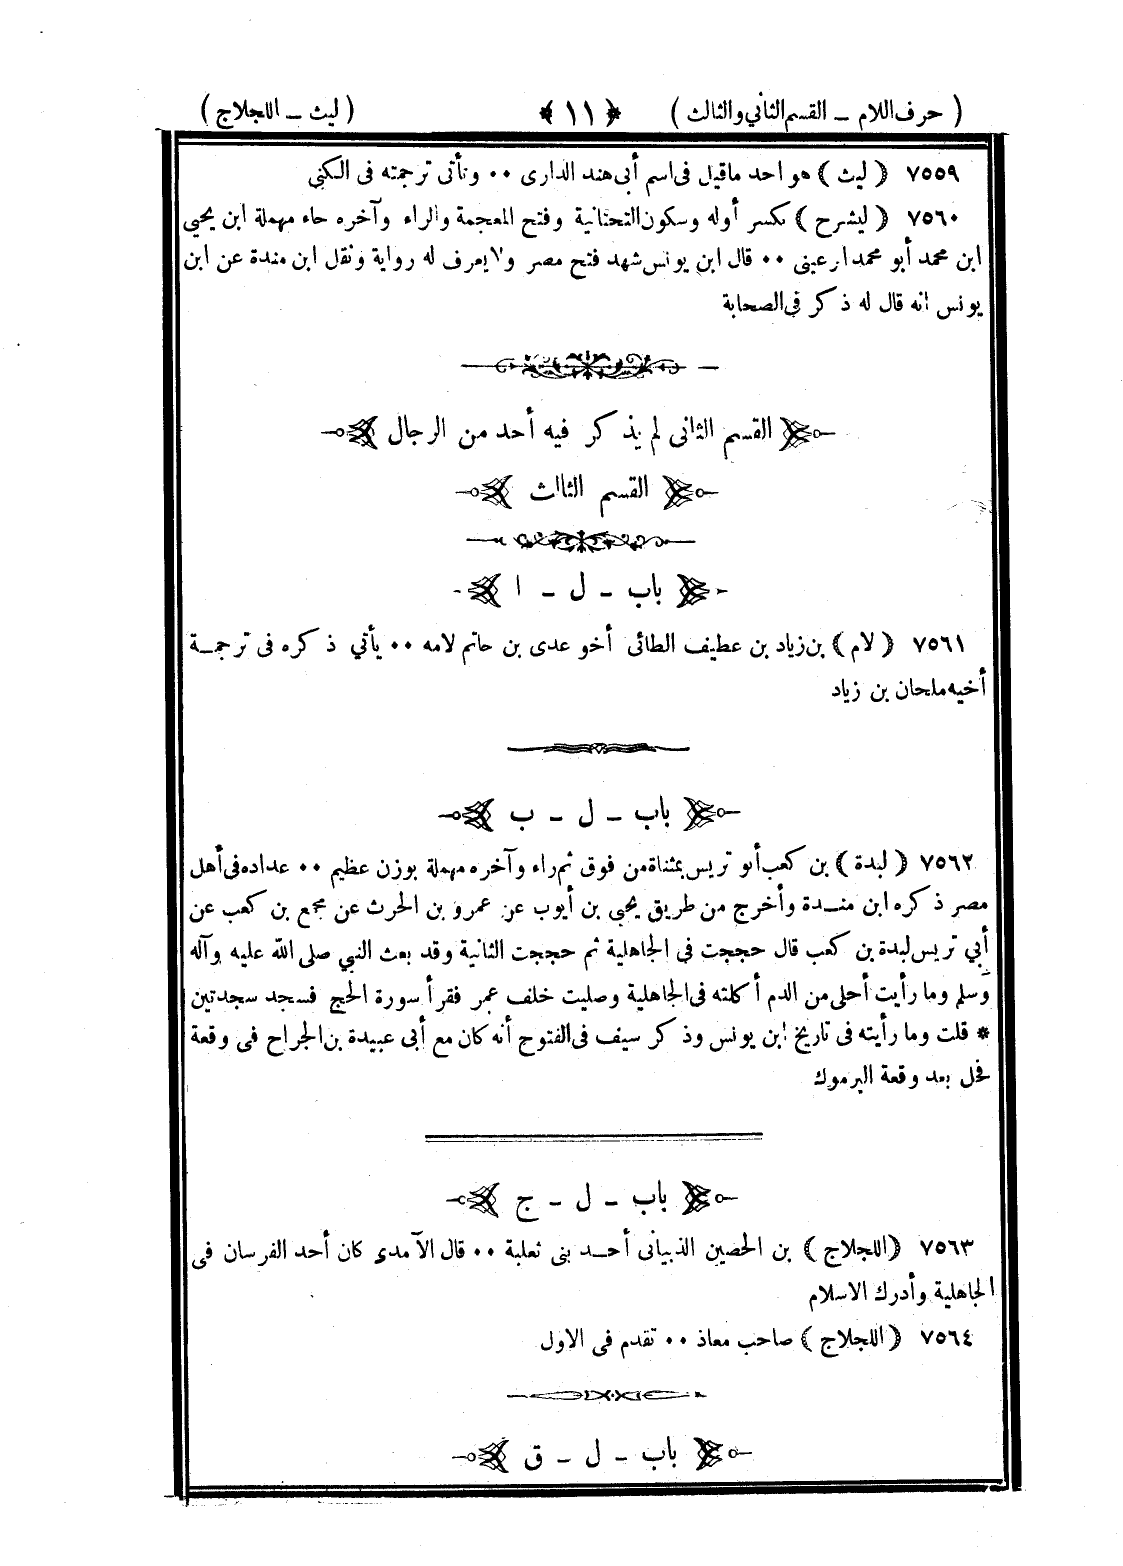 ( حرف اللام ــ القسم الثاني والثالث ) ﴿ ١١ ﴾ ( ليث ــ اللجلاج )
٧٥٥٩ ( ليث ) هو احد ماقيل فى اسم أبى هند الدارى ٠٠ وتأتى ترجمته فى الكنى
٧٥٦٠ ( ليشرح ) بكسر أوله وسكون التحتانية وفتح المعجمة والراء وآخره حاء مهملة ابن يحيى
ابن محمد أبو محمد الرعينى ٠٠ قال ابن يونس شهد فتح مصر ولا يعرف له رواية ونقل ابن مندة عن ابن
يونس انه قال له ذكر فى الصحابة
القسم الثانى لم يذكر فيه أحد من الرجال
القسم الثالث
باب ــ ل ــ ا
٧٥٦١ ( لام ) بن زياد بن عطيف الطائى أخو عدى بن حاتم لامه ٠٠ يأتي ذكره فى ترجمــة
أخيه ملحان بن زياد
باب ــ ل ــ ب
٧٥٦٢ ( لبدة ) بن كعب أبو تريس بمثناة من فوق ثم راء وآخره مهملة بوزن عظيم ٠٠ عداده فى أهل
مصر ذكره ابن منــدة وأخرج من طريق يحيى بن أيوب عن عمرو بن الحرث عن مجمع بن كعب عن
أبي تريس لبدة بن كعب قال حججت فى الجاهلية ثم حججت الثانية وقد بعث النبي صلى الله عليه وآله
وسلم وما رأيت أحلى من الدم أكلته فى الجاهلية وصليت خلف عمر فقرأ سورة الحج فسجد سجدتين
* قلت وما رأيته فى تاريخ ابن يونس وذكر سيف فى الفتوح أنه كان مع أبى عبيدة بن الجراح فى وقعة
فحل بعد وقعة اليرموك
باب ــ ل ــ ج
٧٥٦٣ ( اللجلاج ) بن الحصين الذبيانى أحــد بنى ثعلبة ٠٠ قال الآمدى كان أحد الفرسان فى
الجاهلية وأدرك الاسلام
٧٥٦٤ ( اللجلاج ) صاحب معاذ ٠٠ تقدم فى الاول
باب ــ ل ــ ق